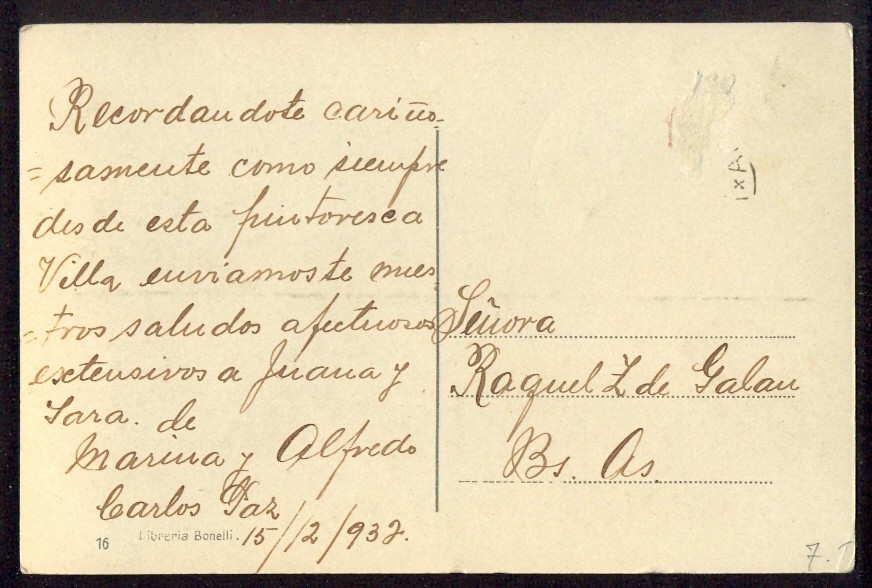 Recordandote cariño-
=samente como siempre
desde esta pintoresca
Villa enviamoste nues-
=tros saludos afectuosos
extensivos a Juana y
Sara. de
Marina y Alfredo
Carlos Paz
15/12/932.
16 Libreria Bonelli.
Señora
Raquel Z de Galan
Bs. As.
7.